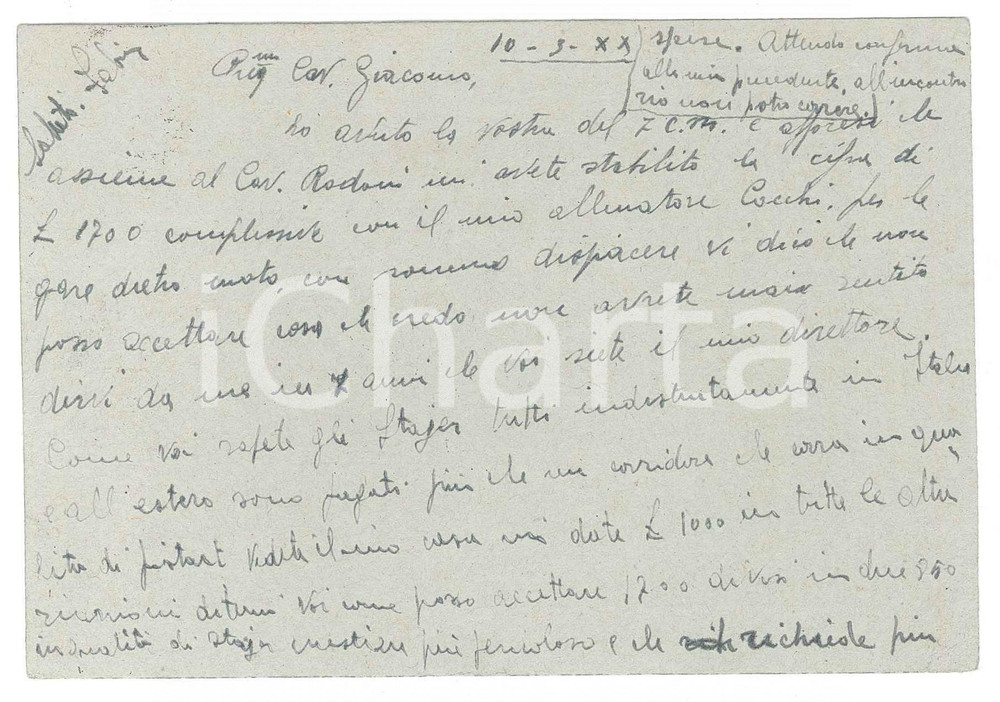 10 - 3 - XX
Preg.mo Cav. Giacomo,
ho avuto la vostra del 7 c.m. e appresi che
assieme al Cav. Rodoni mi avete stabilito la cifra di
£ 1700 complessive con il mio allenatore Cocchi, per le
gare dietro moto, con sommo dispiacere vi dico che non
posso accettare cosa che credo non avrete mai sentito
dirvi da me in 7 anni che voi siete il mio direttore.
Come voi sapete gli Stajer tutti indistintamente in Italia
e all estero sono pagati più che un corridore che corra in qua
lità di pistard vedete il mio caso mi date £ 1000 in tutte le altre
riunioni ditemi voi come posso accettare 1700 divisi in due 850
in qualità di stajer mestiere più pericoloso e che richiede più
spese. Attendo conferma
alla mia precedente, all'incontra
rio non potrò correre.
Saluti. Fabio
iCharta